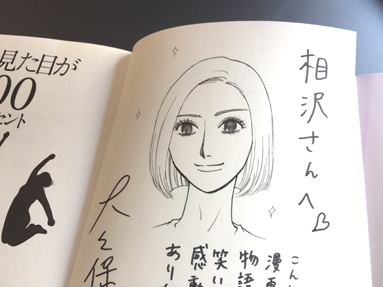 見た目が
00
セント
相沢さんへ
こん
漫画
物語
笑い
感動
あり
大久保